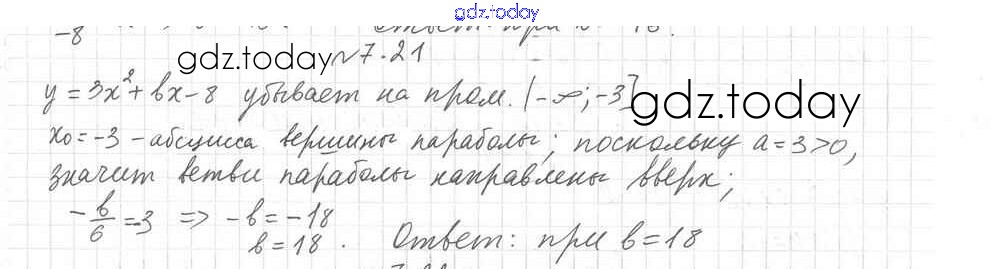 gdz.today
-8
gdz.today №7.21
y = 3x² + bx - 8 убывает на пром. (-∞; -3] gdz.today
x₀ = -3 - абсцисса вершины параболы; поскольку a = 3 > 0,
значит ветви параболы направлены вверх;
-b/6 = -3 => -b = -18
b = 18. Ответ: при b = 18